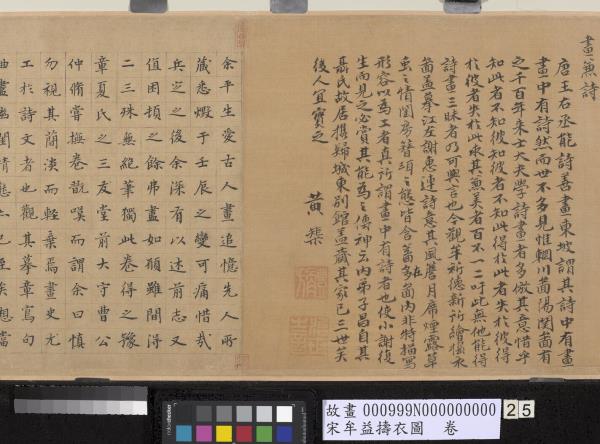 畫兼詩
唐王右丞能詩善畫東坡謂其詩中有畫
畫中有詩然而世不多見惟輞川啚陽関啚有
之千百年来士大夫學詩畫者多倣其意惜乎
知此者不知彼知彼者不知此得於此者失於彼得
於彼者失於此求其兼美者百不一二吁此無他能得
詩畫三昧者乃可與言也今觀牟祈德新所繪擣衣
啚盖摹江左謝惠連詩意其風簷月席煙露草
虫之情閨房簪項之態皆含蓄多在啚内非特描寫
形容以為工者真所謂畫中有詩者也使小謝復
生而見之必賞其能為之傳神云内弟子昌自其
聶氏故居携歸城東別館盖藏其家已三世矣
後人宜寶之
黄槼
余平生愛古人畫追憶先人所
藏悉燬于壬辰之變可痛惜哉
兵定之後余深有以述前志又
值困頓之餘弗盡如願雖間得
二三殊無絕筆獨此卷得之豫
章夏氏之三友堂前大守曹公
仲脩嘗撫卷歎嘆而謂余曰慎
勿視其簡淡而輕棄焉畫史尤
工於詩文者也觀其摹章寫句
故畫 000999N000000000 25
宋牟益擣衣圖 卷